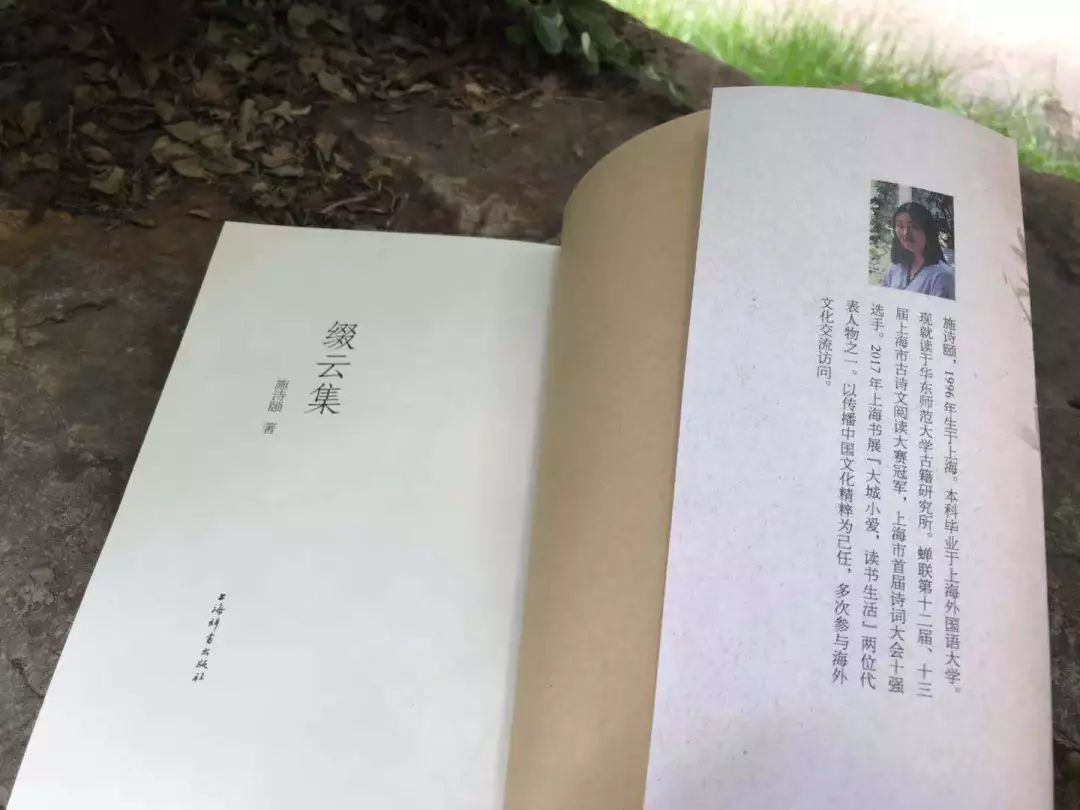 缀云集
施诗颐 著
上海辞书出版社
施诗颐，1996年生于上海。本科毕业于上海外国语大学。
现就读于华东师范大学古籍研究所。蝉联第十二届、十三
届上海市古诗文阅读大赛冠军，上海市首届诗词大会十强
选手。2017年上海书展『大城小爱，读书生活』两位代
表人物之一。以传播中国文化精粹为己任，多次参与海外
文化交流访问。